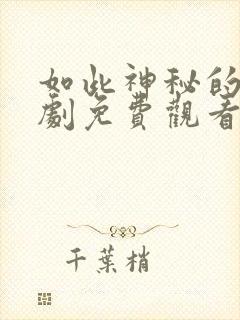 如此神秘的
劇免費觀看
千葉梢